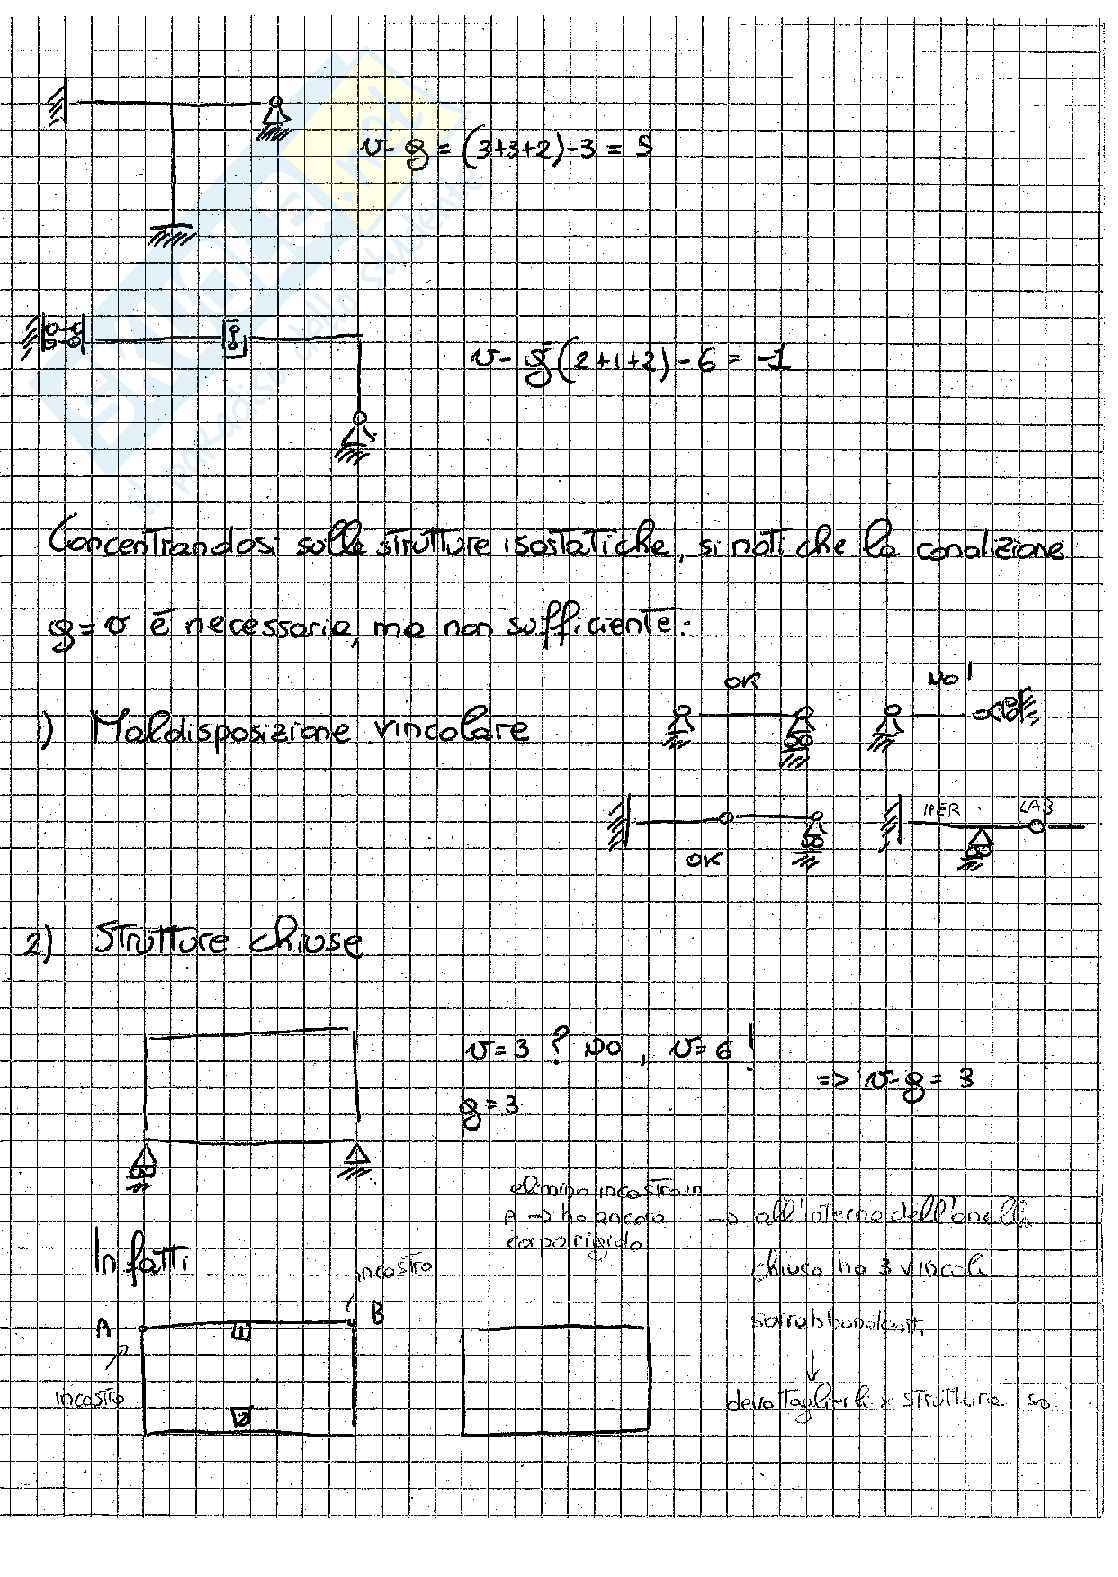 v - g = (3+3+2) - 3 = 5
v - g (2+1+2) - 6 = -1
Concentrandosi sulle strutture isostatiche, si noti che la condizione
g = v è necessaria, ma non sufficiente:
OK
NO!
1) Maldisposizione vincolare
IPER
LAB
OK
2) Strutture chiuse
v = 3 ? NO, v = 6 !
=> v - g = 3
g = 3
elimino incastro in
A -> ho ancora
corpo rigido
-> all'interno dell'anello
Infatti
incastro
chiuso ho 3 vincoli
A
1
B
sovrabbondanti
incastro
2
devo tagliarli x struttura iso